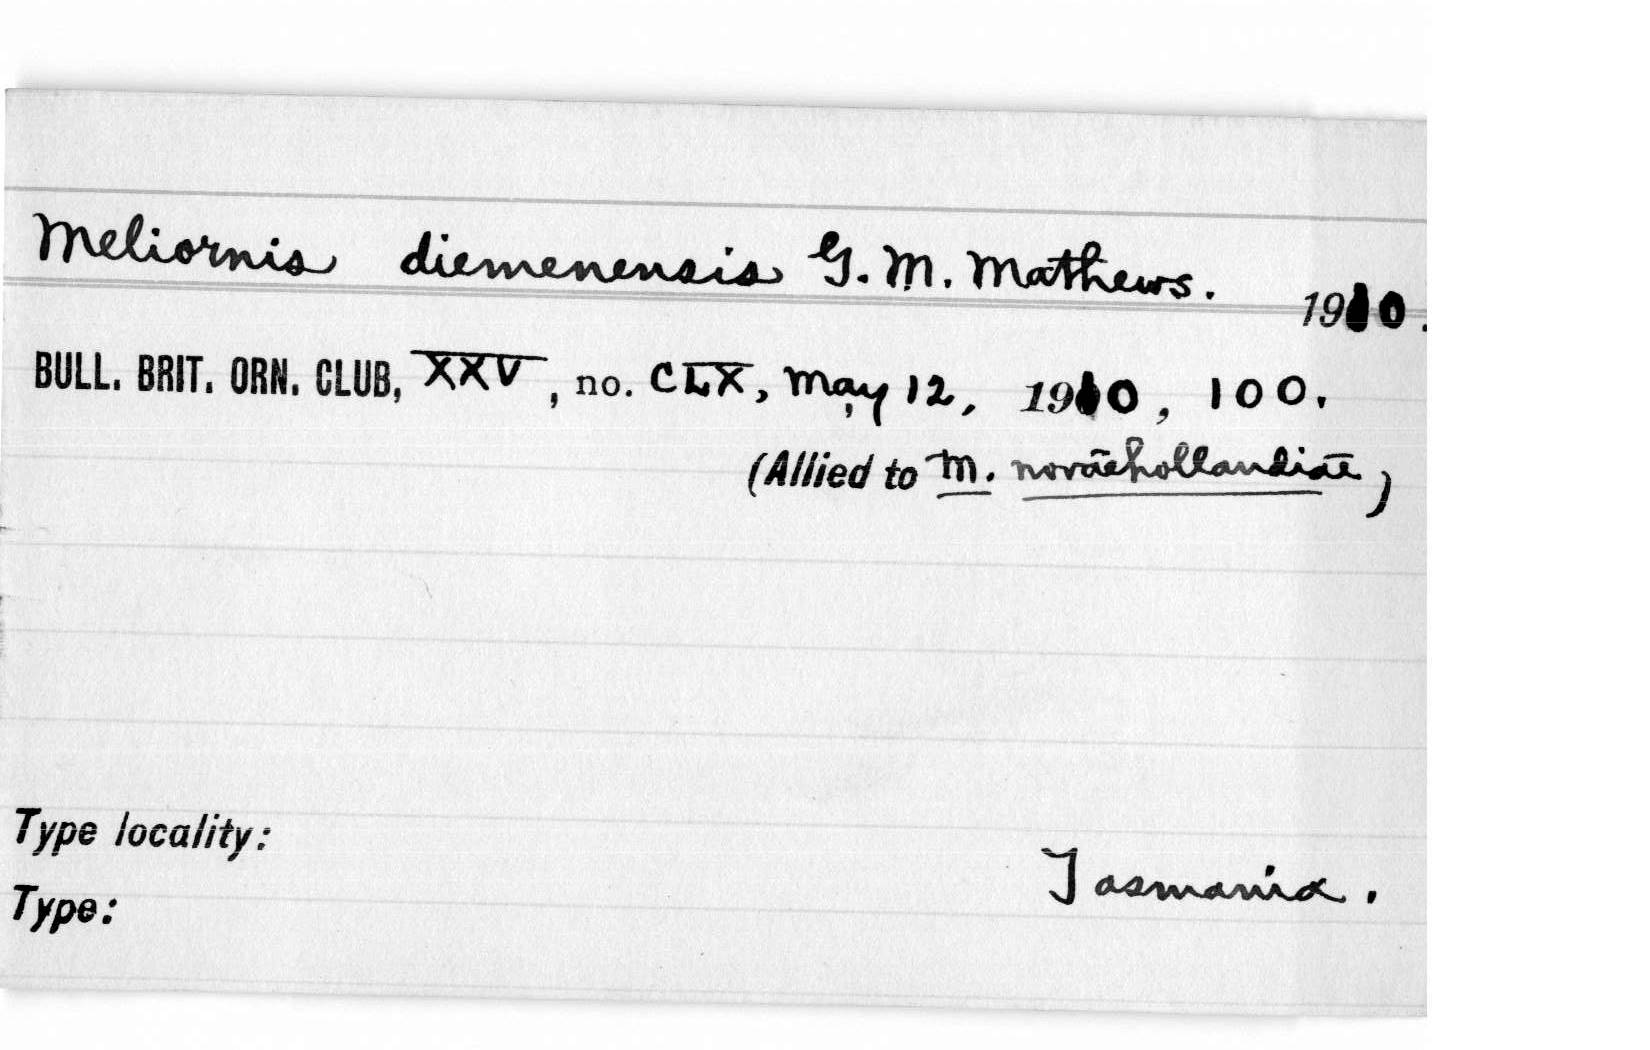 Meliornis diemenensis G. M. Mathews. 1910.
BULL. BRIT. ORN. CLUB, XXV, no. CLX, May 12, 1910, 100.
(Allied to M. novaehollandiae)
Type locality:
Tasmania.
Type: